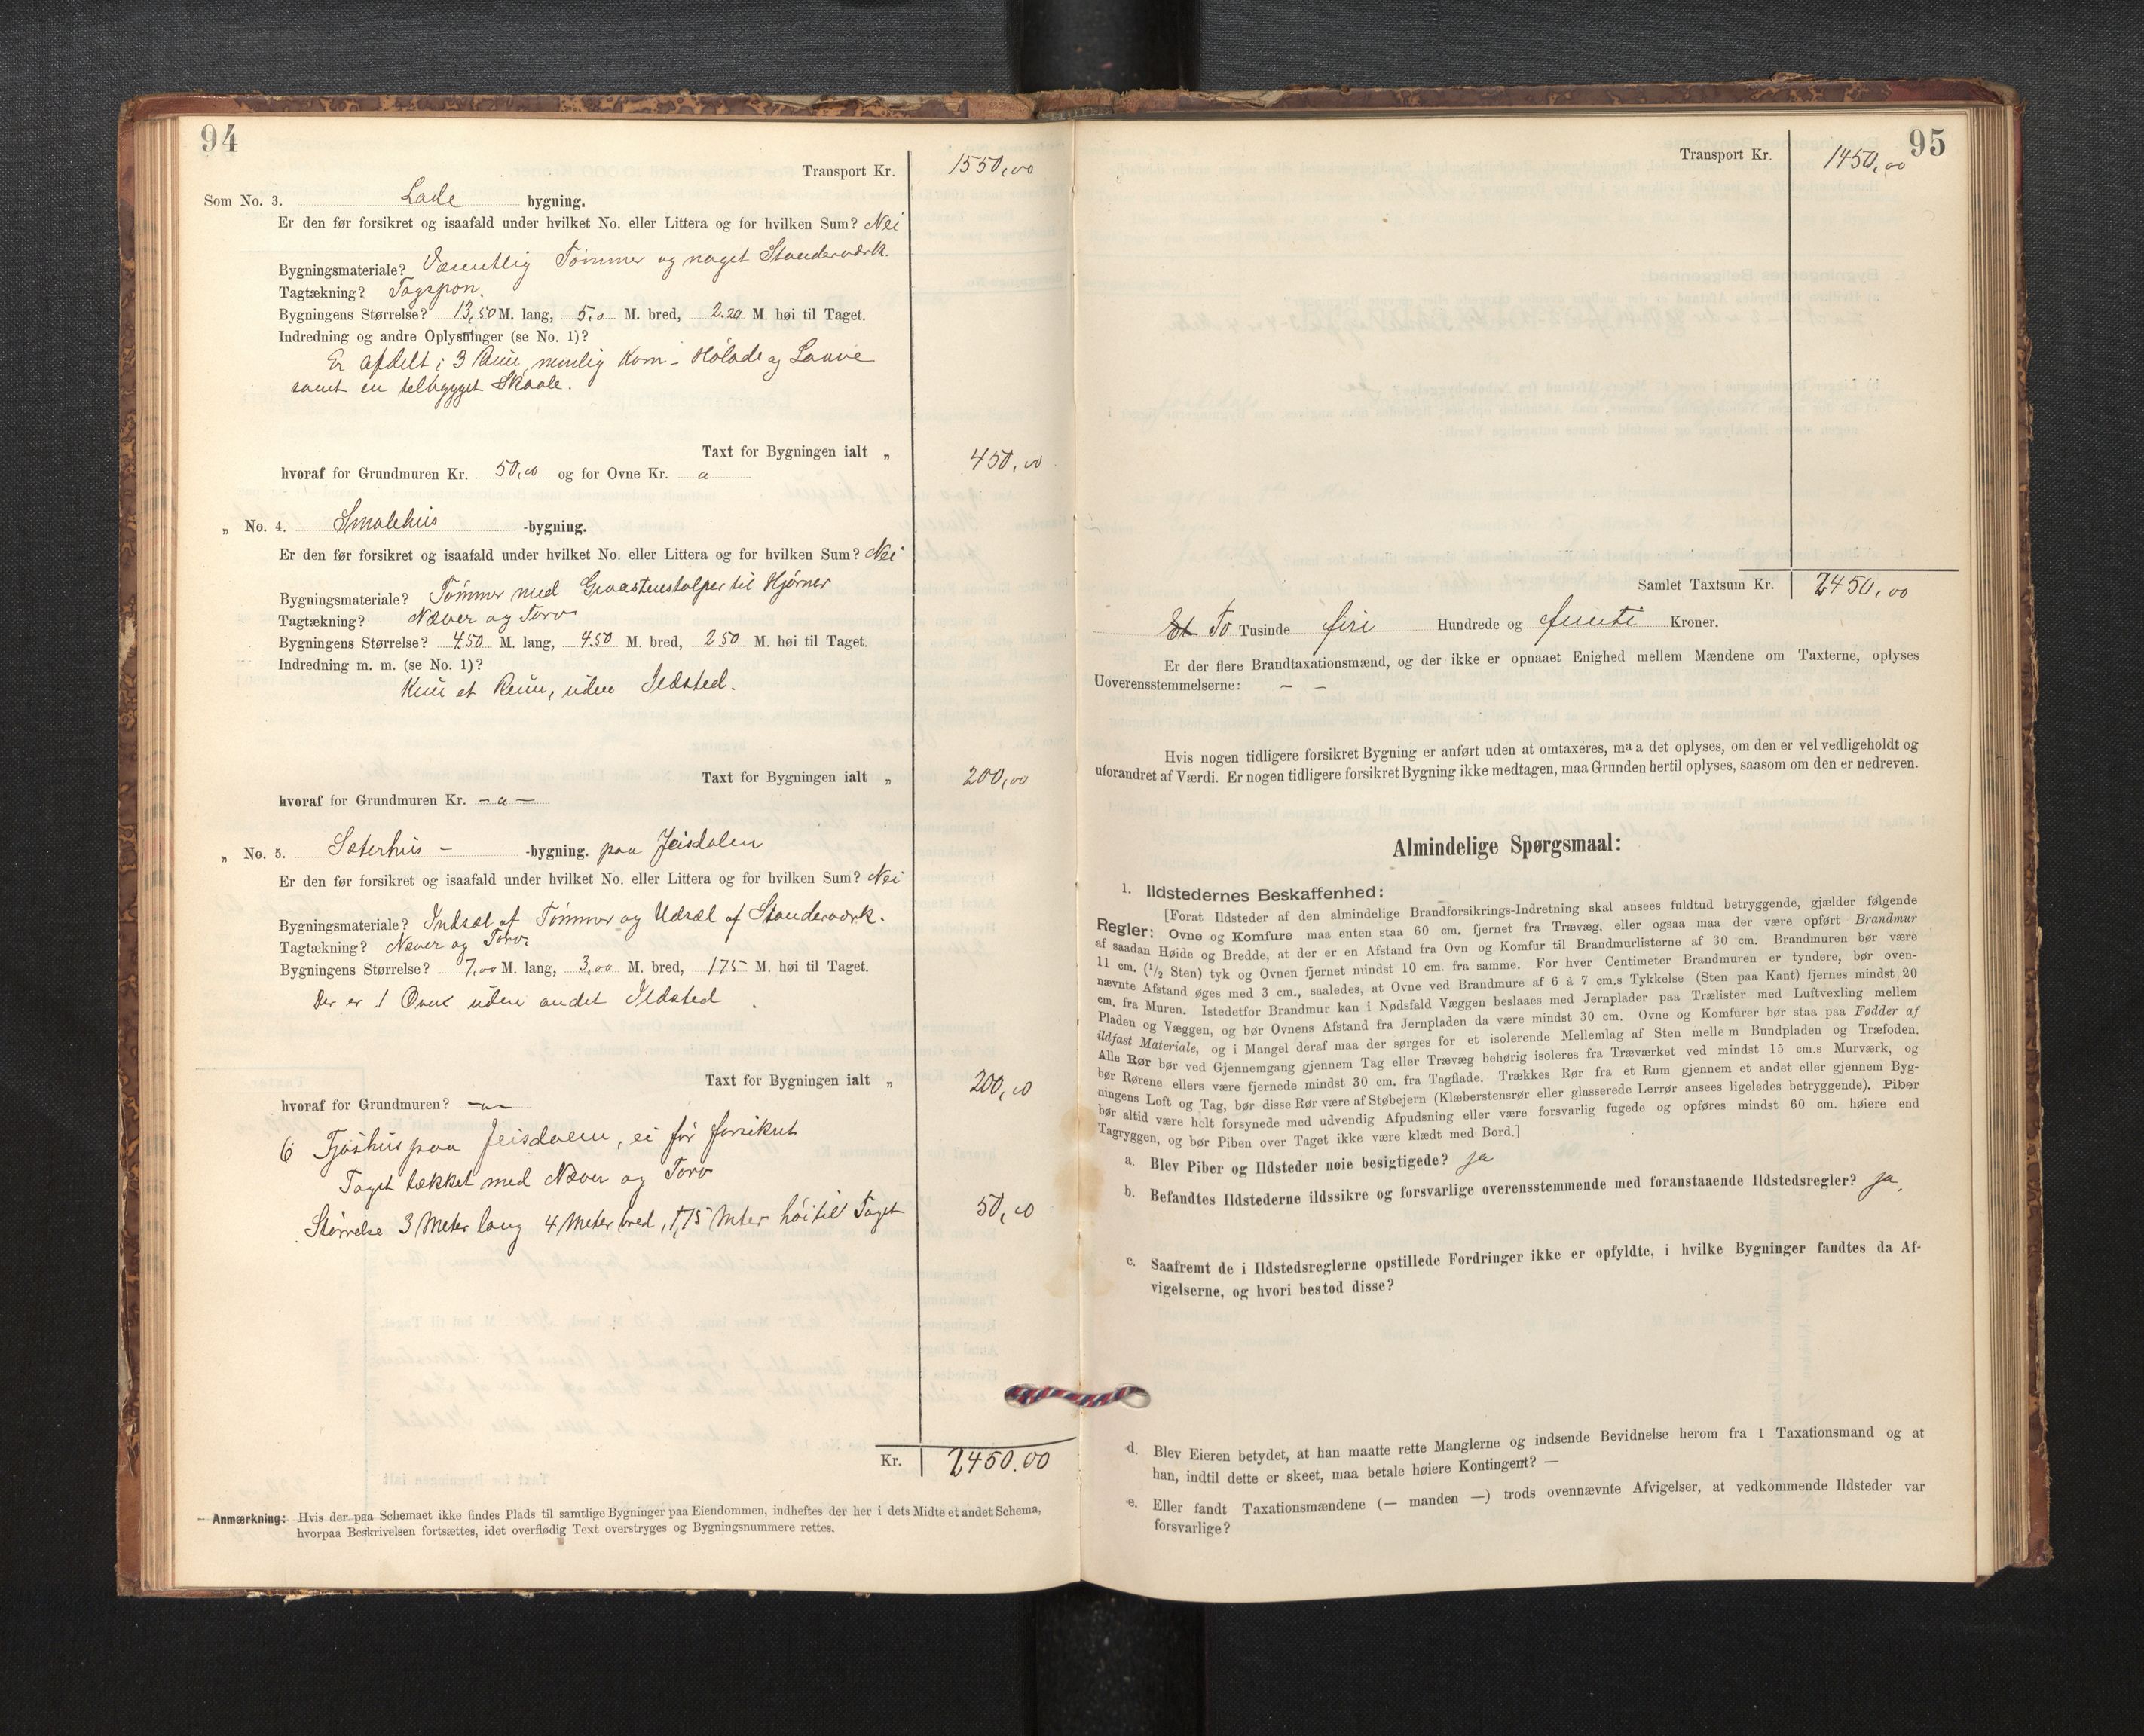 94
Transport Kr. 1550,00
Som No. 3. Lade bygning.
Er den før forsikret og isaafald under hvilket No. eller Littera og for hvilken Sum? Nei
Bygningsmateriale? Væsentlig Tømmer og noget Standerværk.
Tagtækning? Tagspon.
Bygningens Størrelse? 13,50 M. lang, 5,0 M. bred, 2.20 M. høi til Taget.
Indredning og andre Oplysninger (se No. 1)?
Er afdelt i 3 Rum, nemlig Korn- Hølade og Laave
samt en tilbygget Skaale.
Taxt for Bygningen ialt „ 450,00
hvoraf for Grundmuren Kr. 50,00 og for Ovne Kr. a
„ No. 4. Smalehus -bygning.
Er den før forsikret og isaafald under hvilket No. eller Littera og for hvilken Sum? Nei
Bygningsmateriale? Tømmer med Graastenstolper til Hjørner
Tagtækning? Næver og Torv
Bygningens Størrelse? 4.50 M. lang, 4.50 M. bred, 2.50 M. høi til Taget.
Indredning m. m. (se No. 1)?
Kun et Rum, uden Ildsted.
Taxt for Bygningen ialt „ 200,00
hvoraf for Grundmuren Kr. – a –
„ No. 5. Sæterhus – -bygning. paa Jeisdalen
Er den før forsikret og isaafald under hvilket No. eller Littera og for hvilken Sum? Nei
Bygningsmateriale? Indsæl af Tømmer og Udsæl af Standerværk.
Tagtækning? Næver og Torv.
Bygningens Størrelse? 7,00 M. lang, 3,00 M. bred, 175 M. høi til Taget.
Der er 1 Ovn uden andet Ildsted.
Taxt for Bygningen ialt „ 200,00
hvoraf for Grundmuren? – a –
6 Fjøshus paa Jeisdalen, ei før forsikret
Taget tækket med Næver og Torv
Størrelse 3 Meter lang 4 Meter bred, 1,75 Meter høi til Taget 50,00
Kr. 2450.00
Anmærkning: Hvis der paa Schemaet ikke findes Plads til samtlige Bygninger paa Eiendommen, indheftes der her i dets Midte et andet Schema,
hvorpaa Beskrivelsen fortsættes, idet overflødig Text overstryges og Bygningsnummere rettes.
95
Transport Kr. 1450,00
Samlet Taxtsum Kr. 2450,00
Et To Tusinde firi Hundrede og femti Kroner.
Er der flere Brandtaxationsmænd, og der ikke er opnaaet Enighed mellem Mændene om Taxterne, oplyses
Uoverensstemmelserne: – –
Hvis nogen tidligere forsikret Bygning er anført uden at omtaxeres, maa det oplyses, om den er vel vedligeholdt og
uforandret af Værdi. Er nogen tidligere forsikret Bygning ikke medtagen, maa Grunden hertil oplyses, saasom om den er nedreven.
Almindelige Spørgsmaal:
1. Ildstedernes Beskaffenhed:
[Forat Ildsteder af den almindelige Brandforsikrings-Indretning skal ansees fuldtud betryggende, gjælder følgende
Regler: Ovne og Komfure maa enten staa 60 cm. fjernet fra Trævæg, eller ogsaa maa der være opført Brandmur
af saadan Høide og Bredde, at der er en Afstand fra Ovn og Komfur til Brandmurlisterne af 30 cm. Brandmuren bør være
11 cm. (1/2 Sten) tyk og Ovnen fjernet mindst 10 cm. fra samme. For hver Centimeter Brandmuren er tyndere, bør oven-
nævnte Afstand øges med 3 cm., saaledes, at Ovne ved Brandmure af 6 à 7 cm.s Tykkelse (Sten paa Kant) fjernes mindst 20
cm. fra Muren. Istedetfor Brandmur kan i Nødsfald Væggen beslaaes med Jernplader paa Trælister med Luftvexling mellem
Pladen og Væggen, og bør Ovnens Afstand fra Jernpladen da være mindst 30 cm. Ovne og Komfurer bør staa paa Fødder af
ildfast Materiale, og i Mangel deraf maa der sørges for et isolerende Mellemlag af Sten mellem Bundpladen og Træfoden.
Alle Rør bør ved Gjennemgang gjennem Tag eller Trævæg behørig isoleres fra Træværket ved mindst 15 cm.s Murværk, og
bør Rørene ellers være fjernede mindst 30 cm. fra Tagflade. Trækkes Rør fra et Rum gjennem et andet eller gjennem Byg-
ningens Loft og Tag, bør disse Rør være af Støbejern (Klæberstensrør eller glasserede Lerrør ansees ligeledes betryggende). Piber
bør altid være helt forsynede med udvendig Afpudsning eller være forsvarlig fugede og opføres mindst 60 cm. høiere end
Tagryggen, og bør Piben over Taget ikke være klædt med Bord.]
a. Blev Piber og Ildsteder nøie besigtigede? ja
b. Befandtes Ildstederne ildssikre og forsvarlige overensstemmende med foranstaaende Ildstedsregler? ja.
c. Saafremt de i Ildstedsreglerne opstillede Fordringer ikke er opfyldte, i hvilke Bygninger fandtes da Af-
vigelserne, og hvori bestod disse?
d. Blev Eieren betydet, at han maatte rette Manglerne og indsende Bevidnelse herom fra 1 Taxationsmand og at
han, indtil dette er skeet, maa betale høiere Kontingent? —
e. Eller fandt Taxationsmændene (— manden —) trods ovennævnte Afvigelser, at vedkommende Ildsteder var
forsvarlige?